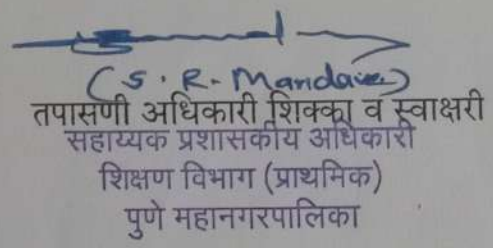 (S. R. Mandave)
तपासणी अधिकारी शिक्का व स्वाक्षरी
सहाय्यक प्रशासकीय अधिकारी
शिक्षण विभाग (प्राथमिक)
पुणे महानगरपालिका